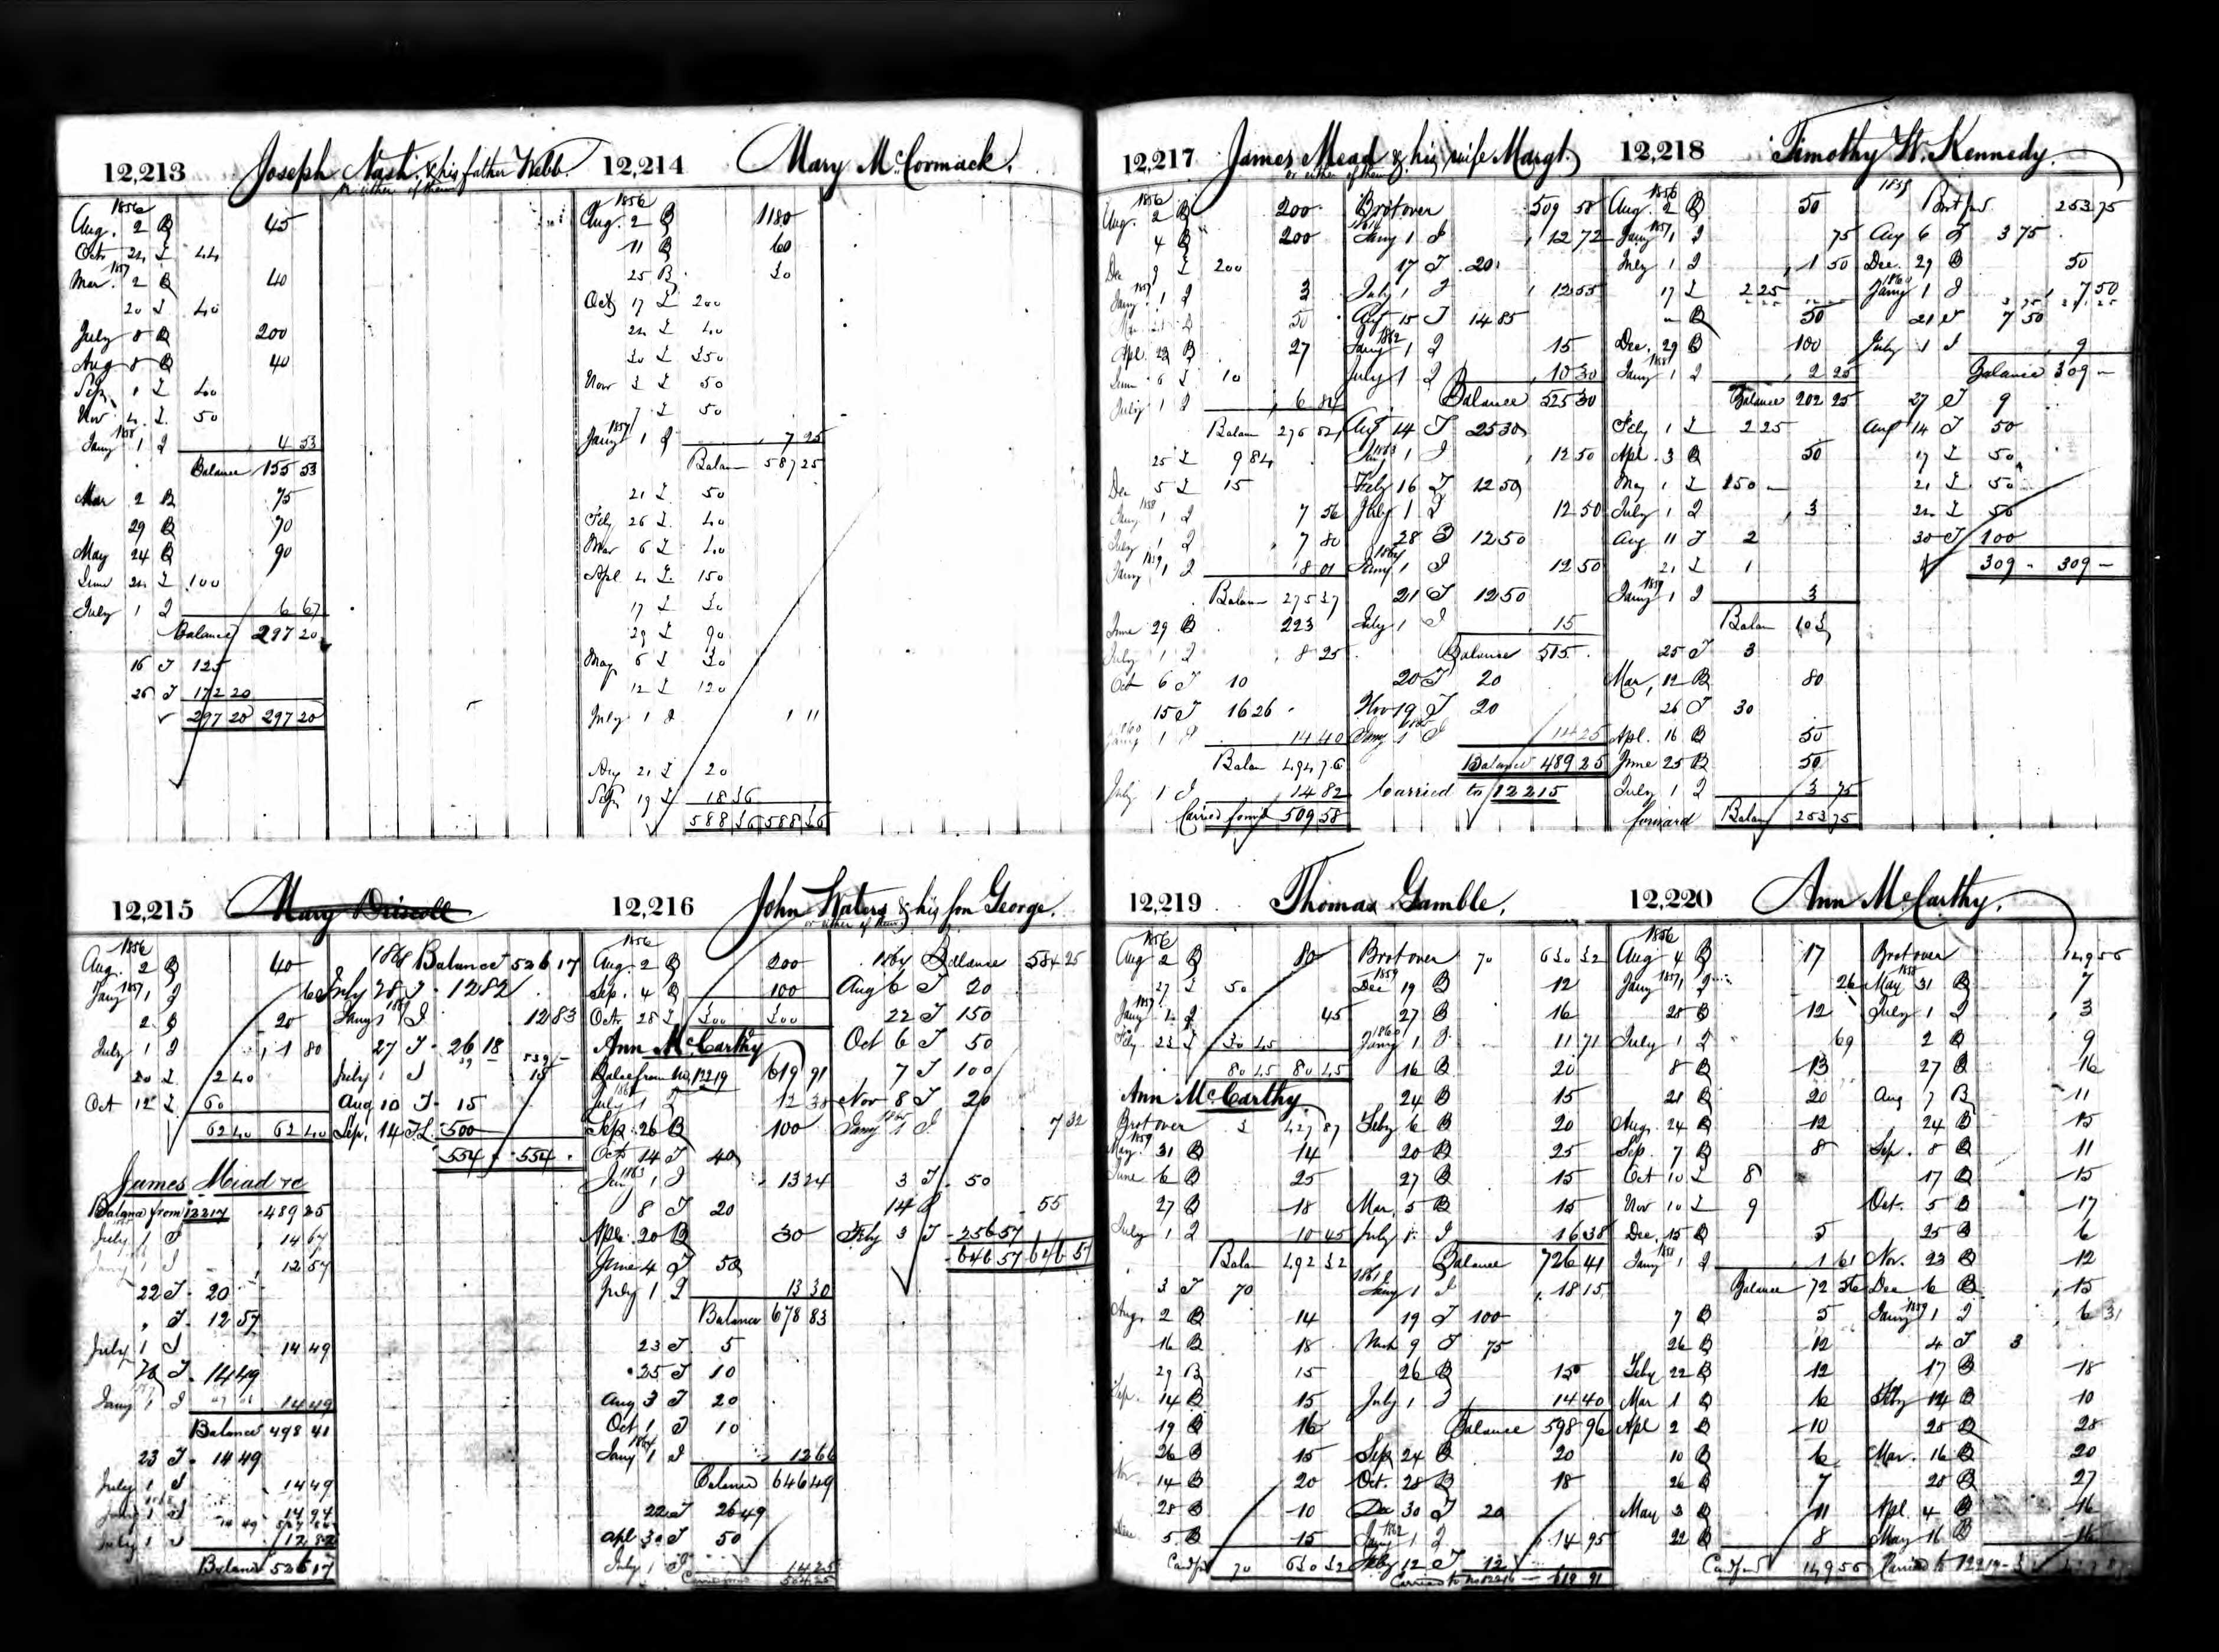 12,213 Joseph Nash, & his father Webb.
or either of them
1856
Aug. 2 B 45
Oct 24 L 44
1857
Mar. 2 B 40
20 L 40
July 8 B 200
Aug 8 B 40
Sep. 1 L 40
Nov 4 L 50
1858
Jany 1 I 4 53
Balance 155 53
Mar 2 B 75
29 B 70
May 24 B 90
June 24 L 100
July 1 I 6 67
Balance 297 20
16 T 125
26 T 172 20
297 20 297 20
12,214 Mary McCormack.
1856
Aug. 2 B 1180
11 B 60
25 B 30
Oct 17 L 200
24 L 40
30 L 350
Nov 3 L 50
7 L 50
1857
Jany 1 I 7 25
Balan 587 25
21 L 50
Feby 26 L 40
Mar 6 L 40
Apl 4 L 150
17 L 30
29 L 90
May 6 L 30
12 L 120
July 1 I 1 11
Aug 21 L 20
Sep 19 L 18 36
588 36 588 36
12,215 Mary Driscoll
1856
Aug. 2 B 40
1857
Jany 1 I 60
2 B 20
July 1 I 1 80
20 L 2 40
Oct 12 L 60
62 40 62 40
James Mead &c
Balance from 12217 489 25
July 1 I 14 67
1 I 12 57
22 T 20
" T 12 57
July 1 I 14 49
T 14 49
Jany 1 I 14 49
Balance 498 41
23 T 14 49
July 1 I 14 49
1 I 14 94
July 1 I 12 82
Balance 526 17
1868 Balance 526 17
July 28 T 12 82
Jany 1 I 12 83
27 T 26 18
July 1 I 15
Aug 10 T 15
Sep. 14 TL 500
554 554
12,216 John Waters & his son George.
or either of them
1856
Aug. 2 B 200
Sep. 4 B 100
Oct 28 L 300 300
Ann McCarthy
Balce from No. 12219 619 91
July 1 I 12 38
Sep. 26 B 100
Oct 14 T 40
1863
Jan 1 I 13 24
8 T 20
Apl. 20 B 30
June 4 T 50
July 1 I 13 30
Balance 678 83
23 T 5
25 T 10
Aug 3 T 20
Oct 1 T 10
1864
Jany 1 I 12 66
Balance 646 49
22 T 26 49
Apl 30 T 50
July 1 I 14 25
584 25
1864 Balance 584 25
Aug 6 T 20
22 T 150
Oct 6 T 50
7 T 100
Nov 8 T 20
1865
Jany 1 I 7 32
3 T 50
14 I 55
Feby 3 T 256 57
646 57 646 57
12,217 James Mead & his wife Margt.
or either of them
1856
Aug. 2 B 200
4 B 200
Dec 9 L 200
1857
Jany 1 I 3
50
Apl. 22 B 27
June 6 L 10
July 1 I 6 84
Balan 276 84
25 L 9 84
Dec 5 L 15
1858
Jany 1 I 7 56
July 1 I 7 80
1859
Jany 1 I 8 01
Balan 275 37
June 29 B 223
July 1 I 8 25
Oct 6 T 10
15 T 16 26
1860
Jany 1 I 14 40
Balan 494 76
July 1 I 14 82
Carried forwd 509 58
Brot over 509 58
1861
Jany 1 I 12 72
17 T 20
July 1 I 12 55
Aug 15 T 14 85
1862
Jany 1 I 15
July 1 I 10 30
Balance 525 30
Aug 14 T 25 30
1863
Jany 1 I 12 50
Feby 16 T 12 50
July 1 I 12 50
28 T 12 50
1864
Jany 1 I 12 50
21 T 12 50
July 1 I 15
Balance 515
20 T 20
Nov 19 T 20
1865
Jany 1 I 14 25
Balance 489 25
Carried to 12215
12,218 Timothy W. Kennedy.
1856
Aug. 2 B 50
1857
Jany 1 I 75
July 1 I 1 50
17 L 2 25
" B 50
Dec. 29 B 100
1858
Jany 1 I 2 25
Balance 202 25
Feby 1 L 2 25
Apl. 3 B 50
May 1 L 150
July 1 I 3
Aug 11 T 2
21 L 1
1859
Jany 1 I 3
Balan 103
25 T 3
Mar. 12 B 80
26 T 30
Apl. 16 B 50
June 25 B 50
July 1 I 3 75
forward Balan 253 75
1859 Brot fwd 253 75
Aug 6 T 3 75
Dec. 29 B 50
1860
Jany 1 I 7 50
21 T 7 50
July 1 I 9
Balance 309
27 T 9
Aug 14 T 50
17 L 50
21 L 50
24 L 50
30 T 100
309 309
12,219 Thomas Gamble.
1856
Aug 2 B 80
27 L 50
1857
Jany 1 I 45
Feby. 23 L 30 45
80 45 80 45
Ann McCarthy
Brot over 3 427 87
1859
May. 31 B 14
June 6 B 25
27 B 18
July 1 I 10 45
Balan 492 32
3 T 70
Aug. 2 B 14
16 B 18
29 B 15
Sep. 14 B 15
19 B 16
26 B 15
Nov. 14 B 20
28 B 10
5 B 15
Card fwd 70 630 32
Brot over 70 630 32
1859
Dec 19 B 12
27 B 16
1860
Jany 1 I 11 71
16 B 20
24 B 15
Feby 6 B 20
20 B 25
27 B 15
Mar. 5 B 15
July 1 I 16 38
Balance 726 41
1861
Jany 1 I 18 15
19 T 100
Mch 9 T 75
26 B 15
July 1 I 14 40
Balance 598 96
Sep 24 B 20
Oct. 28 B 18
Dec 30 T 20
1862
Jany 1 I 14 95
Feby 12 T 12
Carried to No 12216 619 91
12,220 Ann McCarthy.
1856
Aug 4 B 17
1857
Jany 1 I 26
28 B 12
July 1 I 69
8 B 13
21 B 20
Aug. 24 B 12
Sep. 7 B 8
Oct 10 L 8
Nov 10 L 9
Dec. 15 B 5
1858
Jany 1 I 1 61
Balance 72 56
7 B 5
26 B 12
Feby 22 B 12
Mar 1 B 6
Apl 2 B 10
10 B 6
26 B 7
May 3 B 11
22 B 8
Card fwd 149 56
Brot over 149 56
1858
May 31 B 7
July 1 I 3
2 B 9
27 B 16
Aug 7 B 11
24 B 15
Sep. 8 B 11
17 B 15
Oct. 5 B 17
25 B 6
Nov. 23 B 12
Dec 6 B 15
1859
Jany 1 I 6 31
4 T 3
17 B 18
Feby 14 B 10
28 B 28
Mar. 16 B 20
28 B 27
Apl. 4 B 16
May 16 B 16
Carried to 12219 3